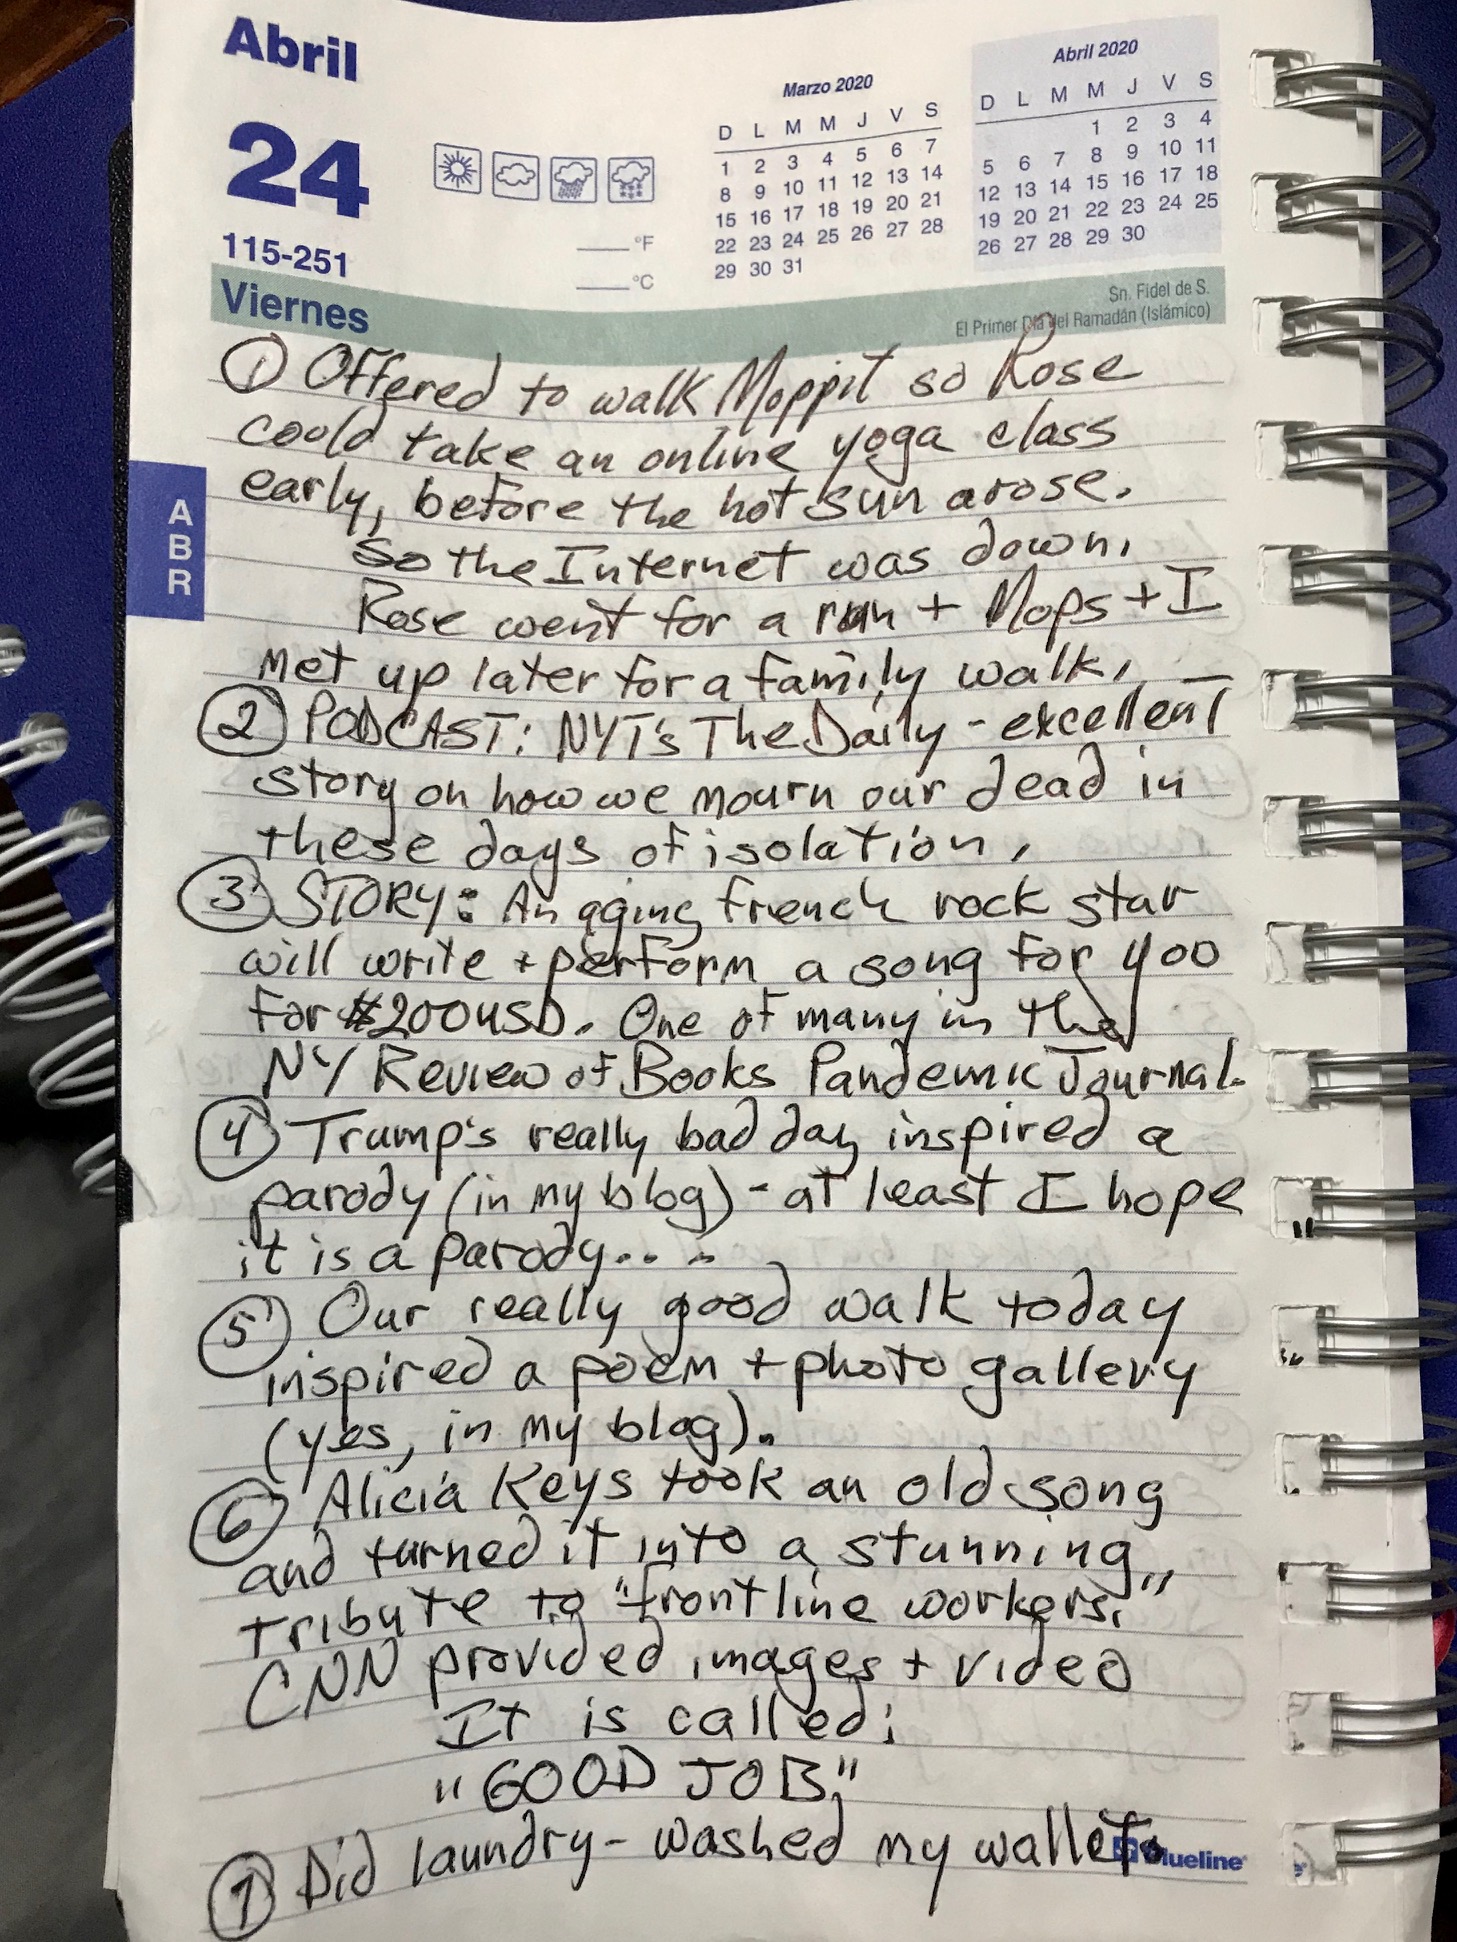 Abril
24
115-251
Viernes
____°F
____°C
Marzo 2020
D L M M J V S
1 2 3 4 5 6 7
8 9 10 11 12 13 14
15 16 17 18 19 20 21
22 23 24 25 26 27 28
29 30 31
Abril 2020
D L M M J V S
1 2 3 4
5 6 7 8 9 10 11
12 13 14 15 16 17 18
19 20 21 22 23 24 25
26 27 28 29 30
Sn. Fidel de S.
El Primer Día del Ramadán (Islámico)
A
B
R
① Offered to walk Moppit so Rose
could take an online yoga class
early, before the hot sun arose.
So the Internet was down.
Rose went for a run + Mops + I
met up later for a family walk.
② PODCAST: NYT's The Daily - excellent
story on how we mourn our dead in
these days of isolation.
③ STORY: An aging french rock star
will write + perform a song for you
for $200 USD. One of many in the
NY Review of Books Pandemic Journal.
④ Trump's really bad day inspired a
parody (in my blog) - at least I hope
it is a parody....
⑤ Our really good walk today
inspired a poem + photo gallery
(yes, in my blog).
⑥ Alicia Keys took an old song
and turned it into a stunning
tribute to "frontline workers."
CNN provided images + video
It is called:
"GOOD JOB."
⑦ Did laundry - washed my wallet.
Blueline